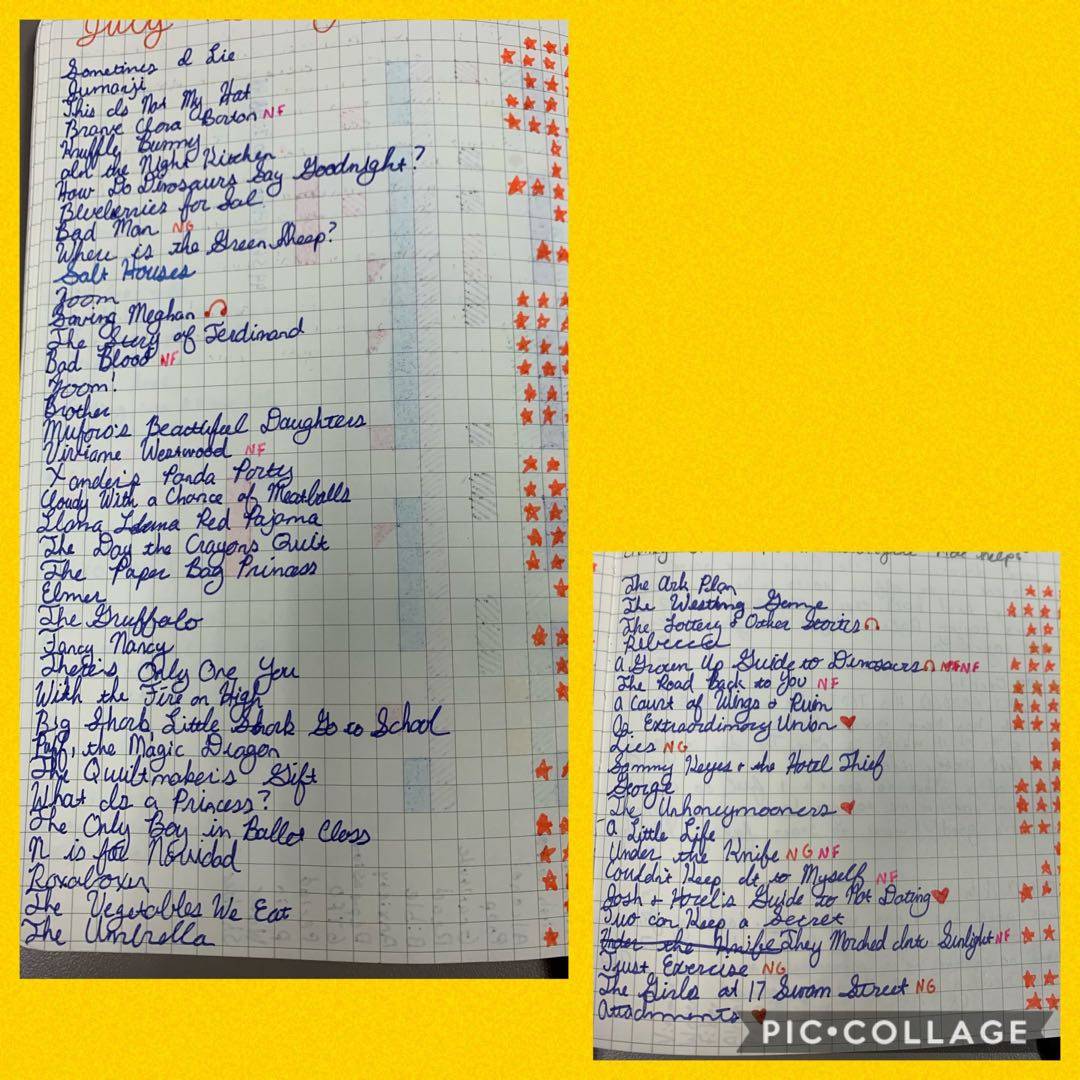 July
Sometimes I Lie
Jumanji
This Is Not My Hat
Brave Clara Barton NF
Knuffle Bunny
In the Night Kitchen
How Do Dinosaurs Say Goodnight?
Blueberries for Sal
Bad Man NG
Where is the Green Sheep?
Salt Houses
Zoom
Saving Meghan
The Story of Ferdinand
Bad Blood NF
Zoom!
Brother
Mufaro's Beautiful Daughters
Viviane Westwood NF
Xander's Panda Party
Cloudy With a Chance of Meatballs
Llama Llama Red Pajama
The Day the Crayons Quit
The Paper Bag Princess
Elmer
The Gruffalo
Fancy Nancy
There's Only One You
With the Fire on High
Big Shark, Little Shark Go to School
Puff, the Magic Dragon
The Quiltmaker's Gift
What Is a Princess?
The Only Boy in Ballet Class
N is for Navidad
Roxaboxen
The Vegetables We Eat
The Umbrella
helps
The Ark Plan
The Westing Game
The Lottery & Other Stories
Rebecca
A Grown Up Guide to Dinosaurs NF
The Road Back to You NF
A Court of Wings & Ruin
An Extraordinary Union
Lies NG
Sammy Keyes & the Hotel Thief
George
The Unhoneymooners
A Little Life
Under the Knife NG NF
Couldn't Keep It to Myself NF
Josh & Hazel's Guide to Not Dating
Two Can Keep a Secret
Under the Knife They Marched Into Sunlight NF
Trust Exercise NG
The Girls at 17 Swann Street NG
Attachments
PIC•COLLAGE